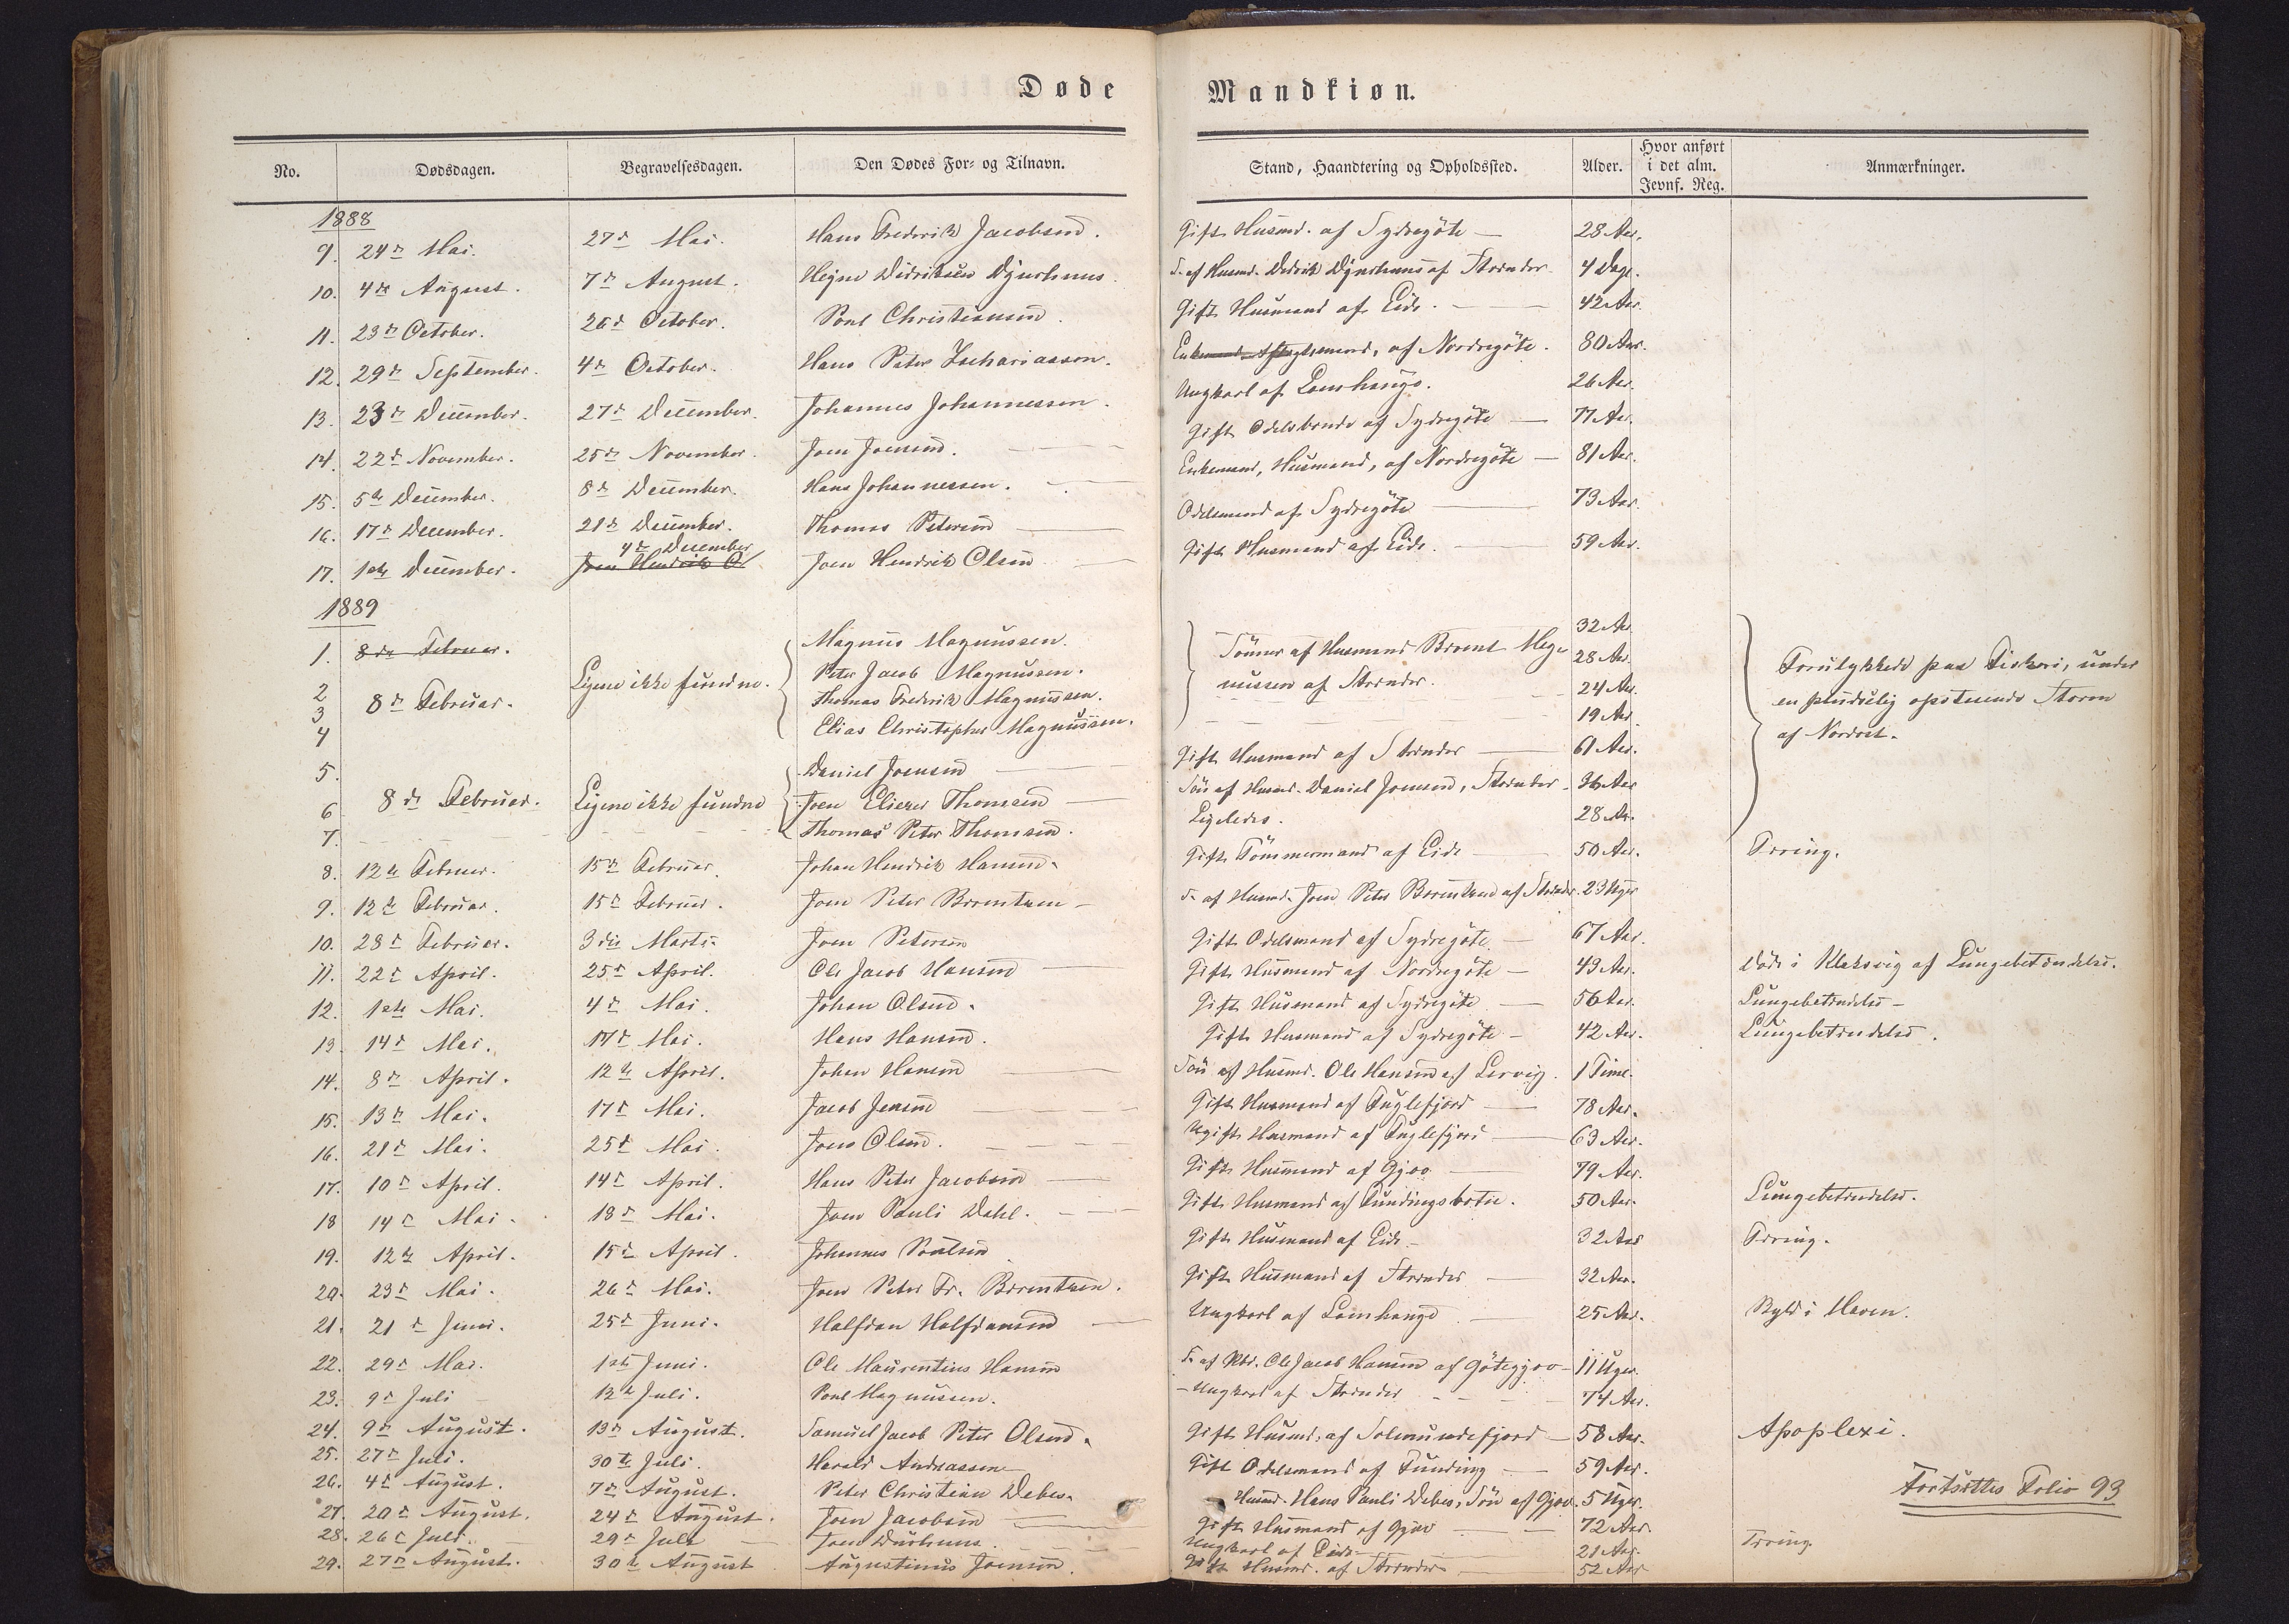 Døde Mandkiøn.
No. Dødsdagen. Begravelsesdagen. Den Dødes For- og Tilnavn. Stand, Haandtering og Opholdssted. Alder. Hvor anført i det alm. Jevnf. Reg. Anmærkninger.
1888
9. 24de Mai. 27de Mai. Hans Frederik Jacobsen. Gift Husmd. af Sydregøte 28 Aar.
10. 4de August. 7de August. Didriksen Djurhuus S. af Husmd. Didrik Djurhuus af Strender 4 Dage.
11. 23de October. 26de October. Poul Christiansen. Gift Husmand af Eide. 42 Aar.
12. 29de September. 4de October. Hans Peter Zachariassen. af Nordregøte. 80 Aar.
13. 23de December. 27de December. Johannes Johannessen. Ungkarl af Lamhauge. 26 Aar.
14. 22de November. 25de November. Joen Joensen. Gift Odelsbonde af Sydregøte 77 Aar.
15. 5te December. 8de December. Hans Johannessen. Enkemand, Husmand, af Nordregøte 81 Aar.
16. 17de December. 21de December. Thomas Petersen Odelsmand af Sydregøte 73 Aar.
17. 1ste December. 4de December Joen Hendrik O Joen Hendrik Olsen Gift Husmand af Eide. 59 Aar.
1889
1. 8de Februar. Magnus Magnussen. 32 Aar
2 Ligene ikke fundne. Peter Jacob Magnussen. Sønner af Husmand Berent Mag- 28 Aar.
3 8de Februar. Thomas Frederik Magnussen. nussen af Strender. 24 Aar. Forulykkede paa Fiskeri, under
4 Elias Christopher Magnussen. 19 Aar en pludselig opstaaende Storm
5. Daniel Joensen Gift Husmand af Strender 61 Aar. af Nordost.
6 8de Februar. Ligene ikke fundne Joen Elieser Thomsen Søn af Husmd. Daniel Joensen, Strender. 36 Aar
7. Thomas Peter Thomsen. Ligeledes. 28 Aar.
8. 12te Februar. 15de Februar. Johan Hendrik Hansen. Gift Tømmermand af Eide 50 Aar. Tæring.
9. 12te Februar. 15de Februar. Joen Peter Berentsen S. af Husmd. Joen Peter Berentsen af Strender. 23 Uger
10. 28de Februar. 3die Marts. Joen Petersen Gift Odelsmand af Sydregøte 67 Aar.
11. 22de April. 25de April. Ole Jacob Hansen Gift Husmand af Nordregøte 43 Aar. Døde i Klaksvig af Lungebetændelse.
12. 1ste Mai. 4de Mai. Johan Olsen. Gift Husmand af Sydregøte 56 Aar. Lungebetændelse
13. 14de Mai. 17de Mai. Hans Hansen. Gift Husmand af Sydregøte 42 Aar. Lungebetændelse.
14. 8de April. 12te April. Johan Hansen Søn af Husmd. Ole Hansen af Lervig. 1 Time.
15. 13de Mai. 17de Mai. Jacob Jensen Gift Husmand af Fuglefjord 78 Aar.
16. 21de Mai. 25de Mai. Joen Olsen. Ugift Husmand af Fuglefjord 63 Aar.
17. 10de April. 14de April. Hans Peter Jacobsen Gift Husmand af Gjov 79 Aar.
18 14de Mai. 18de Mai. Joen Pauli Dahl. Gift Husmand af Fundingsbotn. 50 Aar. Lungebetændelse.
19. 12te April. 15de April. Johannes Poulsen Gift Husmand af Eide. 32 Aar Tæring.
20. 23de Mai. 26de Mai. Joen Peter Fr. Berentsen. Gift Husmand af Strender 32 Aar.
21. 21de Juni. 25de Juni. Halfdan Halfdansen Ungkarl af Lamhauge 25 Aar. Byld i Maven.
22. 29de Mai. 1ste Juni. Ole Maurentius Hansen S. af Kbd. Ole Jacob Hansen af Gøtegjov 11 Uger.
23. 9de Juli 12te Juli. Poul Magnussen. Ungkarl af Strender 74 Aar.
24. 9de August. 13de August. Samuel Jacob Peter Olsen. Gift Husmd. af Solmundefjord 58 Aar. Apoplexi.
25. 27de Juli. 30te Juli. Harald Andreassen Gift Odelsmand af Funding 59 Aar.
26. 4de August. 7de August. Peter Christian Debes. Husmd. Hans Pauli Debes, Søn af Gjov. 5 Uger. Fortsættes Folio 93
27. 20de August. 24de August. Joen Jacobsen Gift Husmand af Gjov 72 Aar.
28. 26de Juli. 29de Juli Joen Durhuus. Ungkarl af Eide 21 Aar. Tæring.
29. 27de August. 30te August Augustinus Joensen. Gift Husmd. af Strender 52 Aar